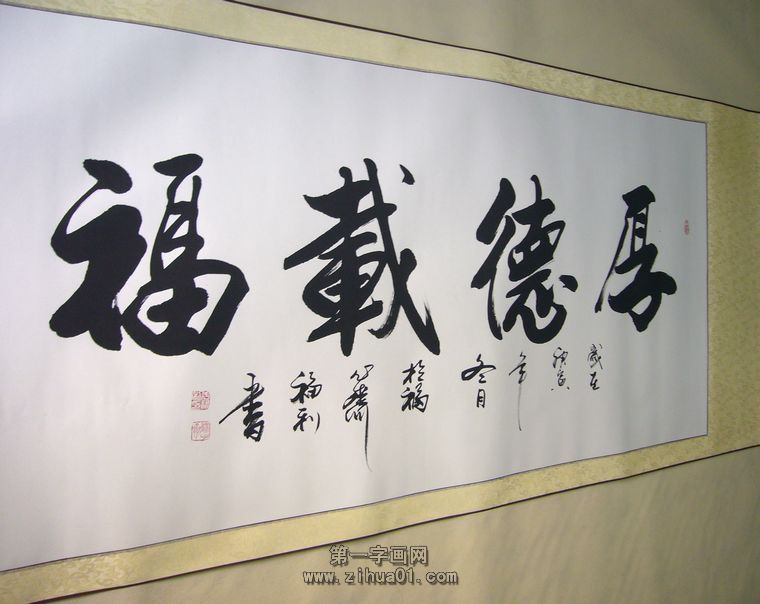 厚德載福
歲在
庚寅
年
冬月
於福
心齋
福利
書
第一字画网
www.zihua01.com